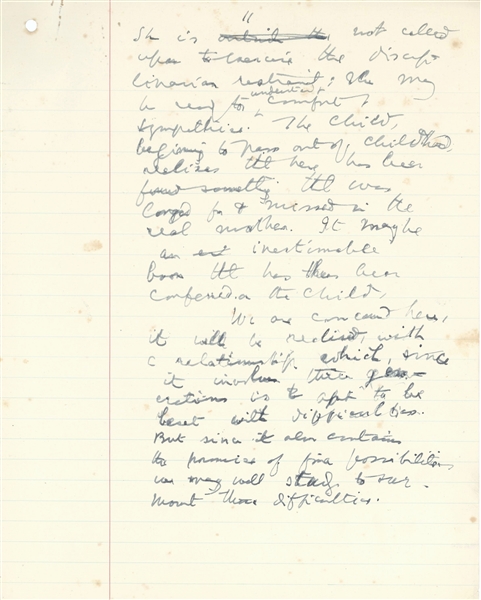 11
She is outside the not called
upon to exercise the discip-
linarian restraint; she may
be ready to understand
comfort &
sympathise. The child,
beginning to pass out of childhood,
realises tht here has been
found something tht was
longed for & missed in the
real mother. It may be
an inestimable
boon tht has thus been
conferred on the child.
We are concerned here,
it will be realised, with
a relationship which, since
it involves three gen-
erations is apt to be
beset with difficulties.
But since it also contains
the promise of fine possibilities
we may well study to sur-
mount those difficulties.